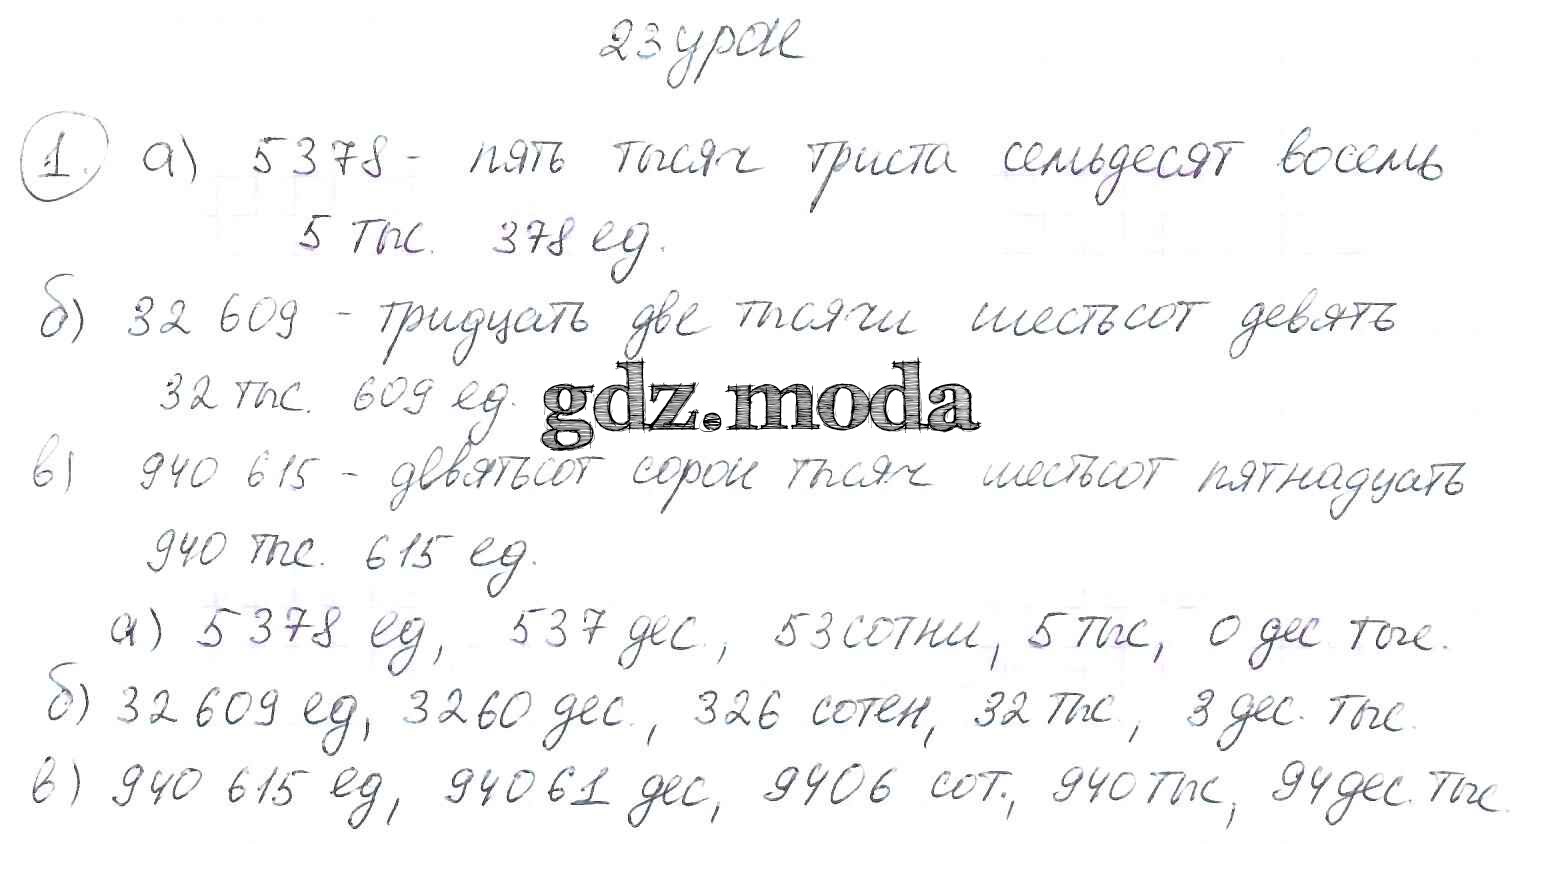 23 урок
1. а) 5378 - пять тысяч триста семьдесят восемь
5 тыс. 378 ед.
б) 32 609 - тридцать две тысячи шестьсот девять
32 тыс. 609 ед.
gdz.moda
в) 940 615 - девятьсот сорок тысяч шестьсот пятнадцать
940 тыс. 615 ед.
а) 5378 ед, 537 дес., 53 сотни, 5 тыс, 0 дес тыс.
б) 32 609 ед, 3260 дес., 326 сотен, 32 тыс., 3 дес. тыс.
в) 940 615 ед, 94061 дес, 9406 сот., 940 тыс, 94 дес. тыс.